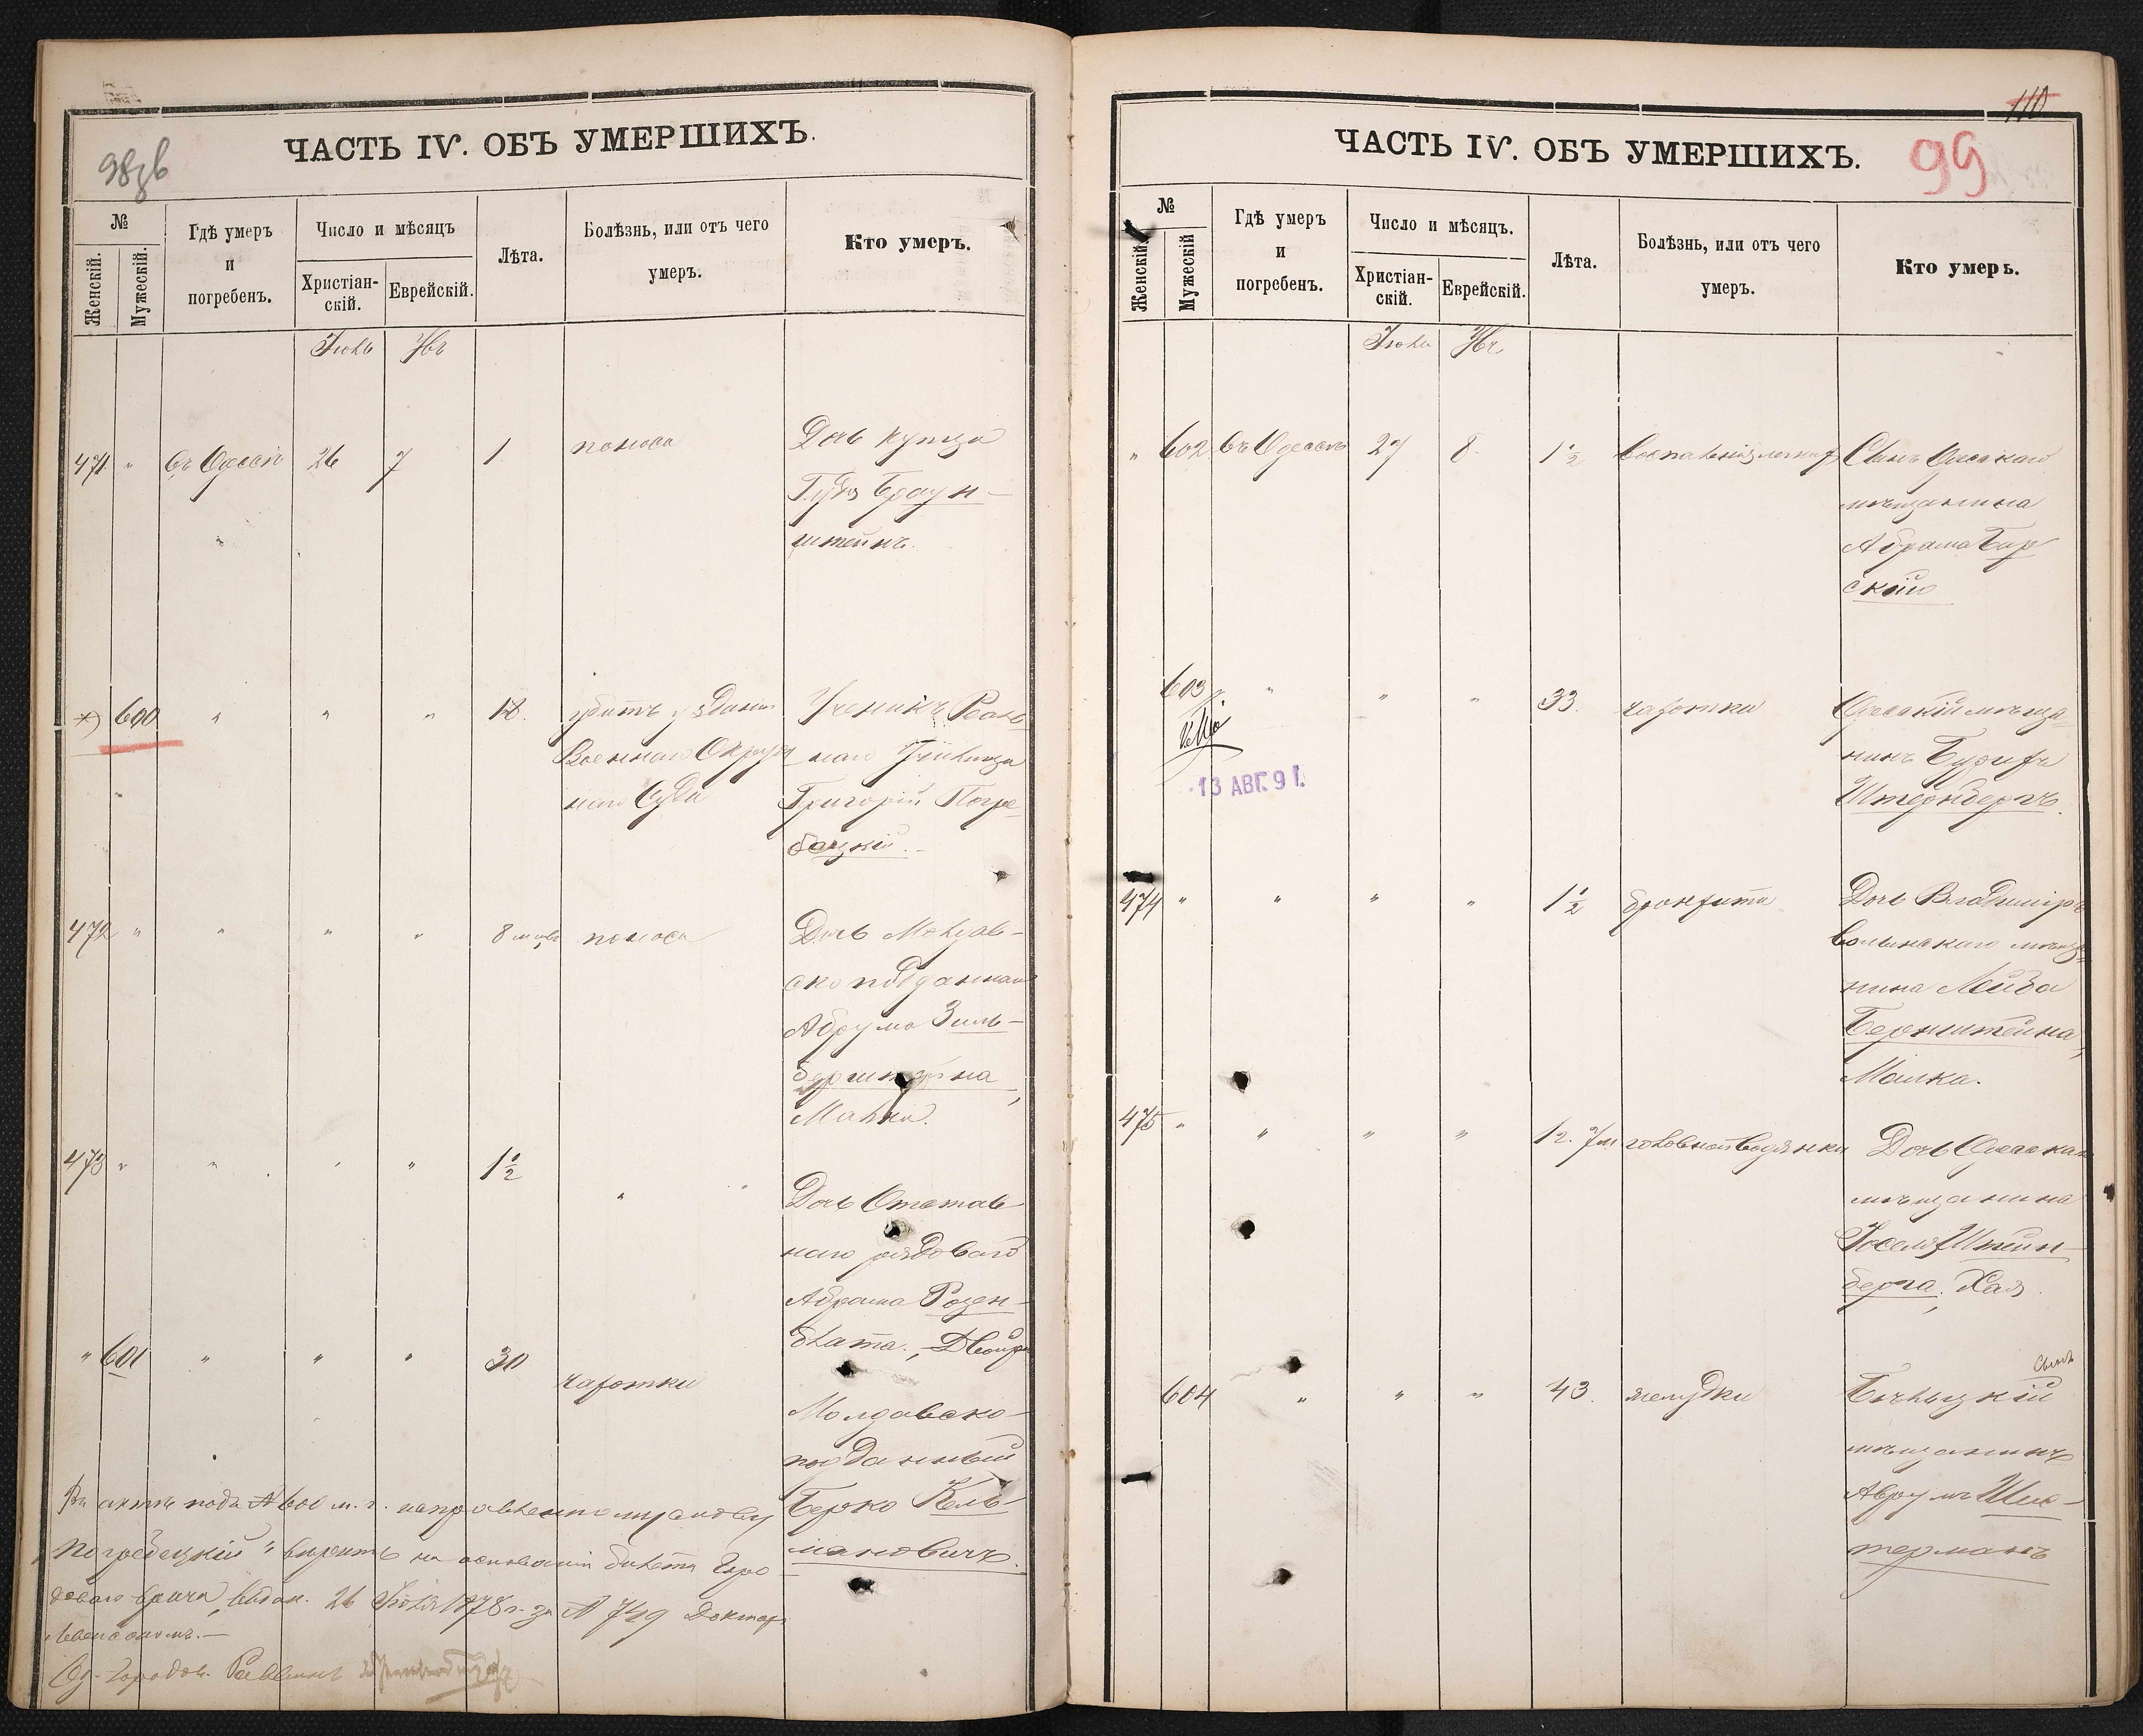 98зв
ЧАСТЬ IV. ОБЪ УМЕРШИХЪ.
№
Женскій.
Мужескій.
Гдѣ умеръ
и
погребенъ.
Число и мѣсяцъ
Христіан-
скій.
Еврейскій.
Лѣта.
Болѣзнь, или отъ чего
умеръ.
Кто умеръ.
Іюль
471 " въ Одессѣ 26 7 1 поноса Дочь купца
Браун-
штейнъ.
*) 600 " " " 18. убитъ у зданія Ученикъ Реаль
Военнаго Окруж наго Училища
наго Суда Григорій Погре-
бецкій.
472 " " " " 8 мѣс. поноса Дочь Молдав-
ско подданнаго
Абрума Зиль-
берштейна,
Малка.
473 " " " " 1 1/2 " Дочь Отстав-
наго рядоваго
Абрама Розен-
блата, Двойра
" 601 " " " 30 чахотки Молдавско-
подданный
Берко Кель-
мановичъ.
Въ актѣ подъ № 600 м. г. направленному
Погребецкій" вѣрить на основаніи билета Горо
доваго врача, выдан. 26 Іюля 1878 г. за № 749 Докторъ
Левенсономъ.—
Од. Городов. Раввинъ
110
99
ЧАСТЬ IV. ОБЪ УМЕРШИХЪ.
№
Женскій.
Мужескій
Гдѣ умеръ
и
погребенъ.
Число и мѣсяцъ.
Христіан-
скій.
Еврейскій.
Лѣта.
Болѣзнь, или отъ чего
умеръ.
Кто умеръ.
Іюль
" 602 въ Одессѣ 27 8. 1 1/2 воспаленія легкихъ Сынъ Одесскаго
мѣщанина
Абрама Бар
скаго
603 " " " 33. чахотки Одесскій мѣща-
нинъ Бурихъ
Штернбергъ.
13 АВГ. 9 Г.
474 " " " " 1 1/2 бронхита Дочь Владимір
волынскаго мѣща-
нина Лейба
Бернштейна,
Малка.
475 " " " " 12. 7м головной водянки Дочь Одесскаго
мѣщанина
Іоселя Штейн-
берга, Хая.
604 " " " 43. желудка
Сынъ
мѣщанинъ
Аврумъ Шис-
терманъ